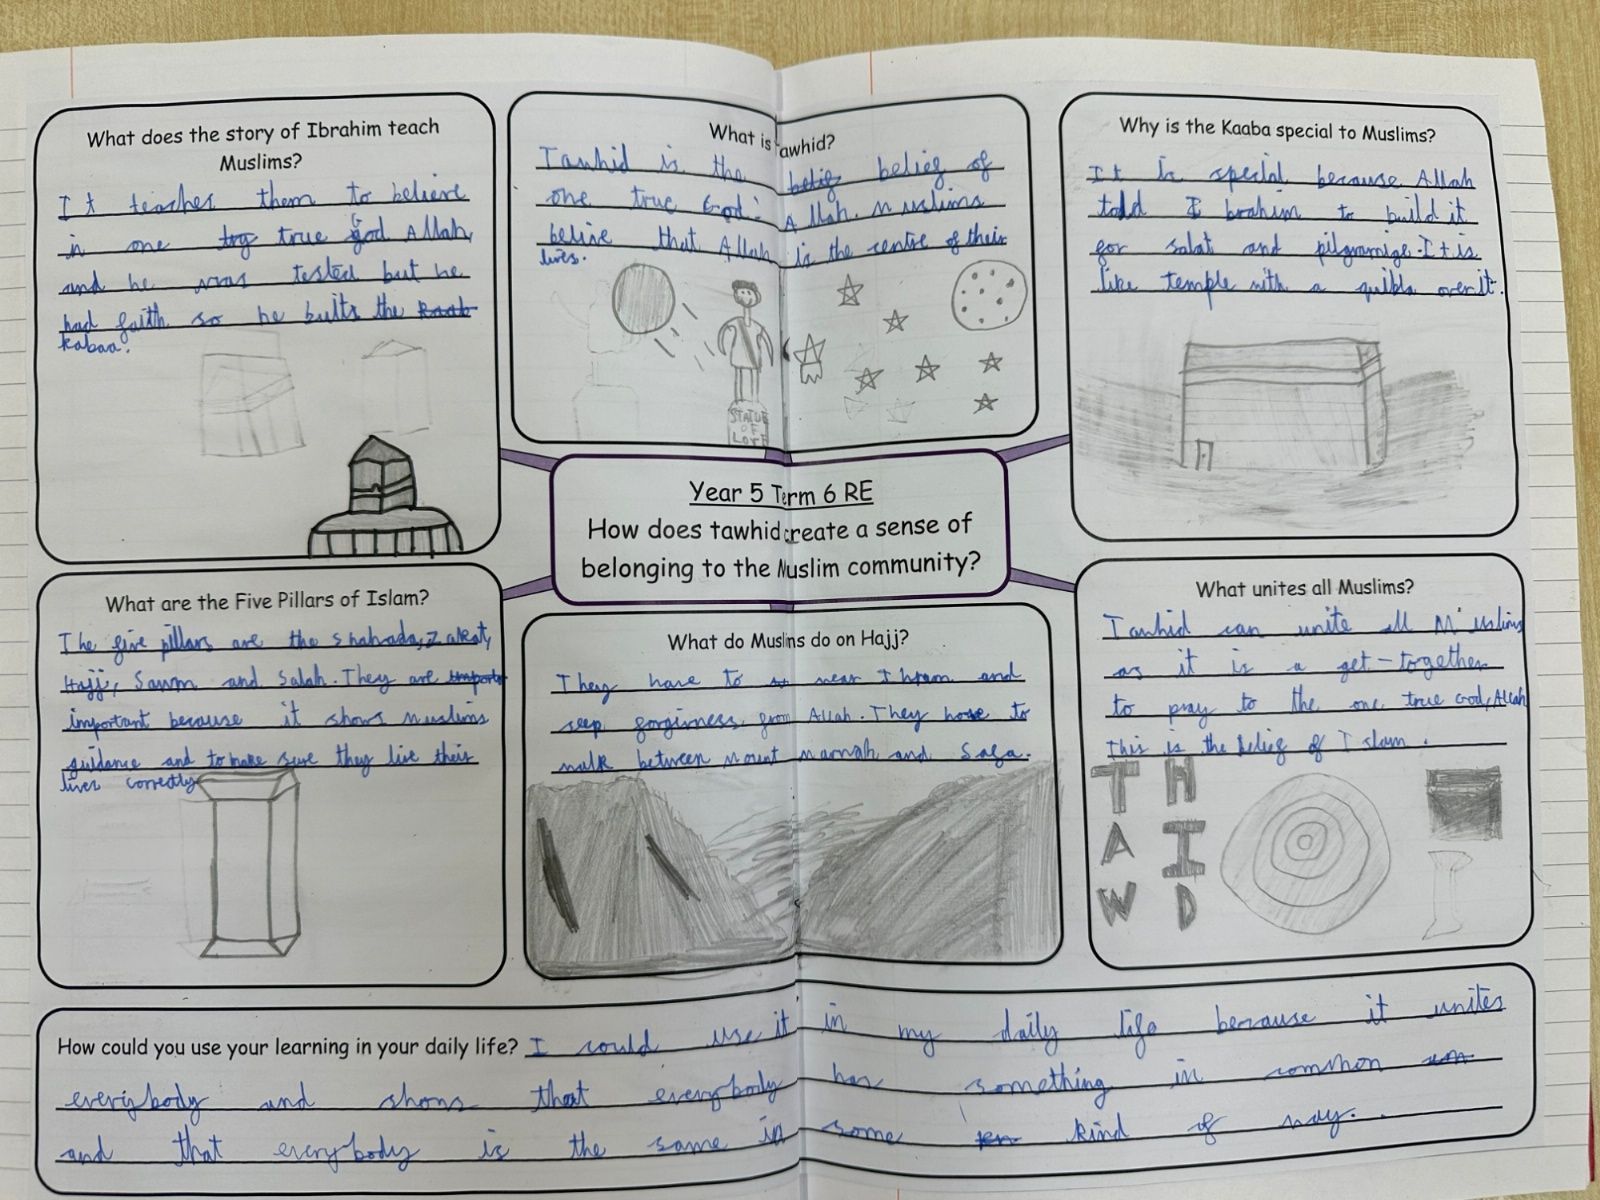 What does the story of Ibrahim teach
Muslims?
It teaches them to believe
in one true God Allah,
and he was tested but he
had faith so he builts the kaab
kabaa.
What is tawhid?
Tawhid is the belief of
one true God: Allah. Muslims
belive that Allah is the centre of their
lives.
STATUE
OF
Why is the Kaaba special to Muslims?
It is special because Allah
told Ibrahim to build it
for salat and pilgramige. It is
like temple with a quibla over it.
Year 5 Term 6 RE
How does tawhid create a sense of
belonging to the Muslim community?
What are the Five Pillars of Islam?
The five pillars are the Shahada, Zakat,
Hajj, Sawm and Salah. They are
important because it shows Muslims
guidance and to make sure they live their
lives correctly
What do Muslims do on Hajj?
They have to wear Ihram and
seep forgivness from Allah. They have to
walk between Mount Marwah and Safa.
What unites all Muslims?
Tawhid can unite all Muslims
as it is a get-together
to pray to the one true God, Allah
This is the belief of Islam.
T H
A I
W D
How could you use your learning in your daily life? I could use it in my daily life because it unites
everybody and shows that everybody has something in common
and that everybody is the same in some kind of way.